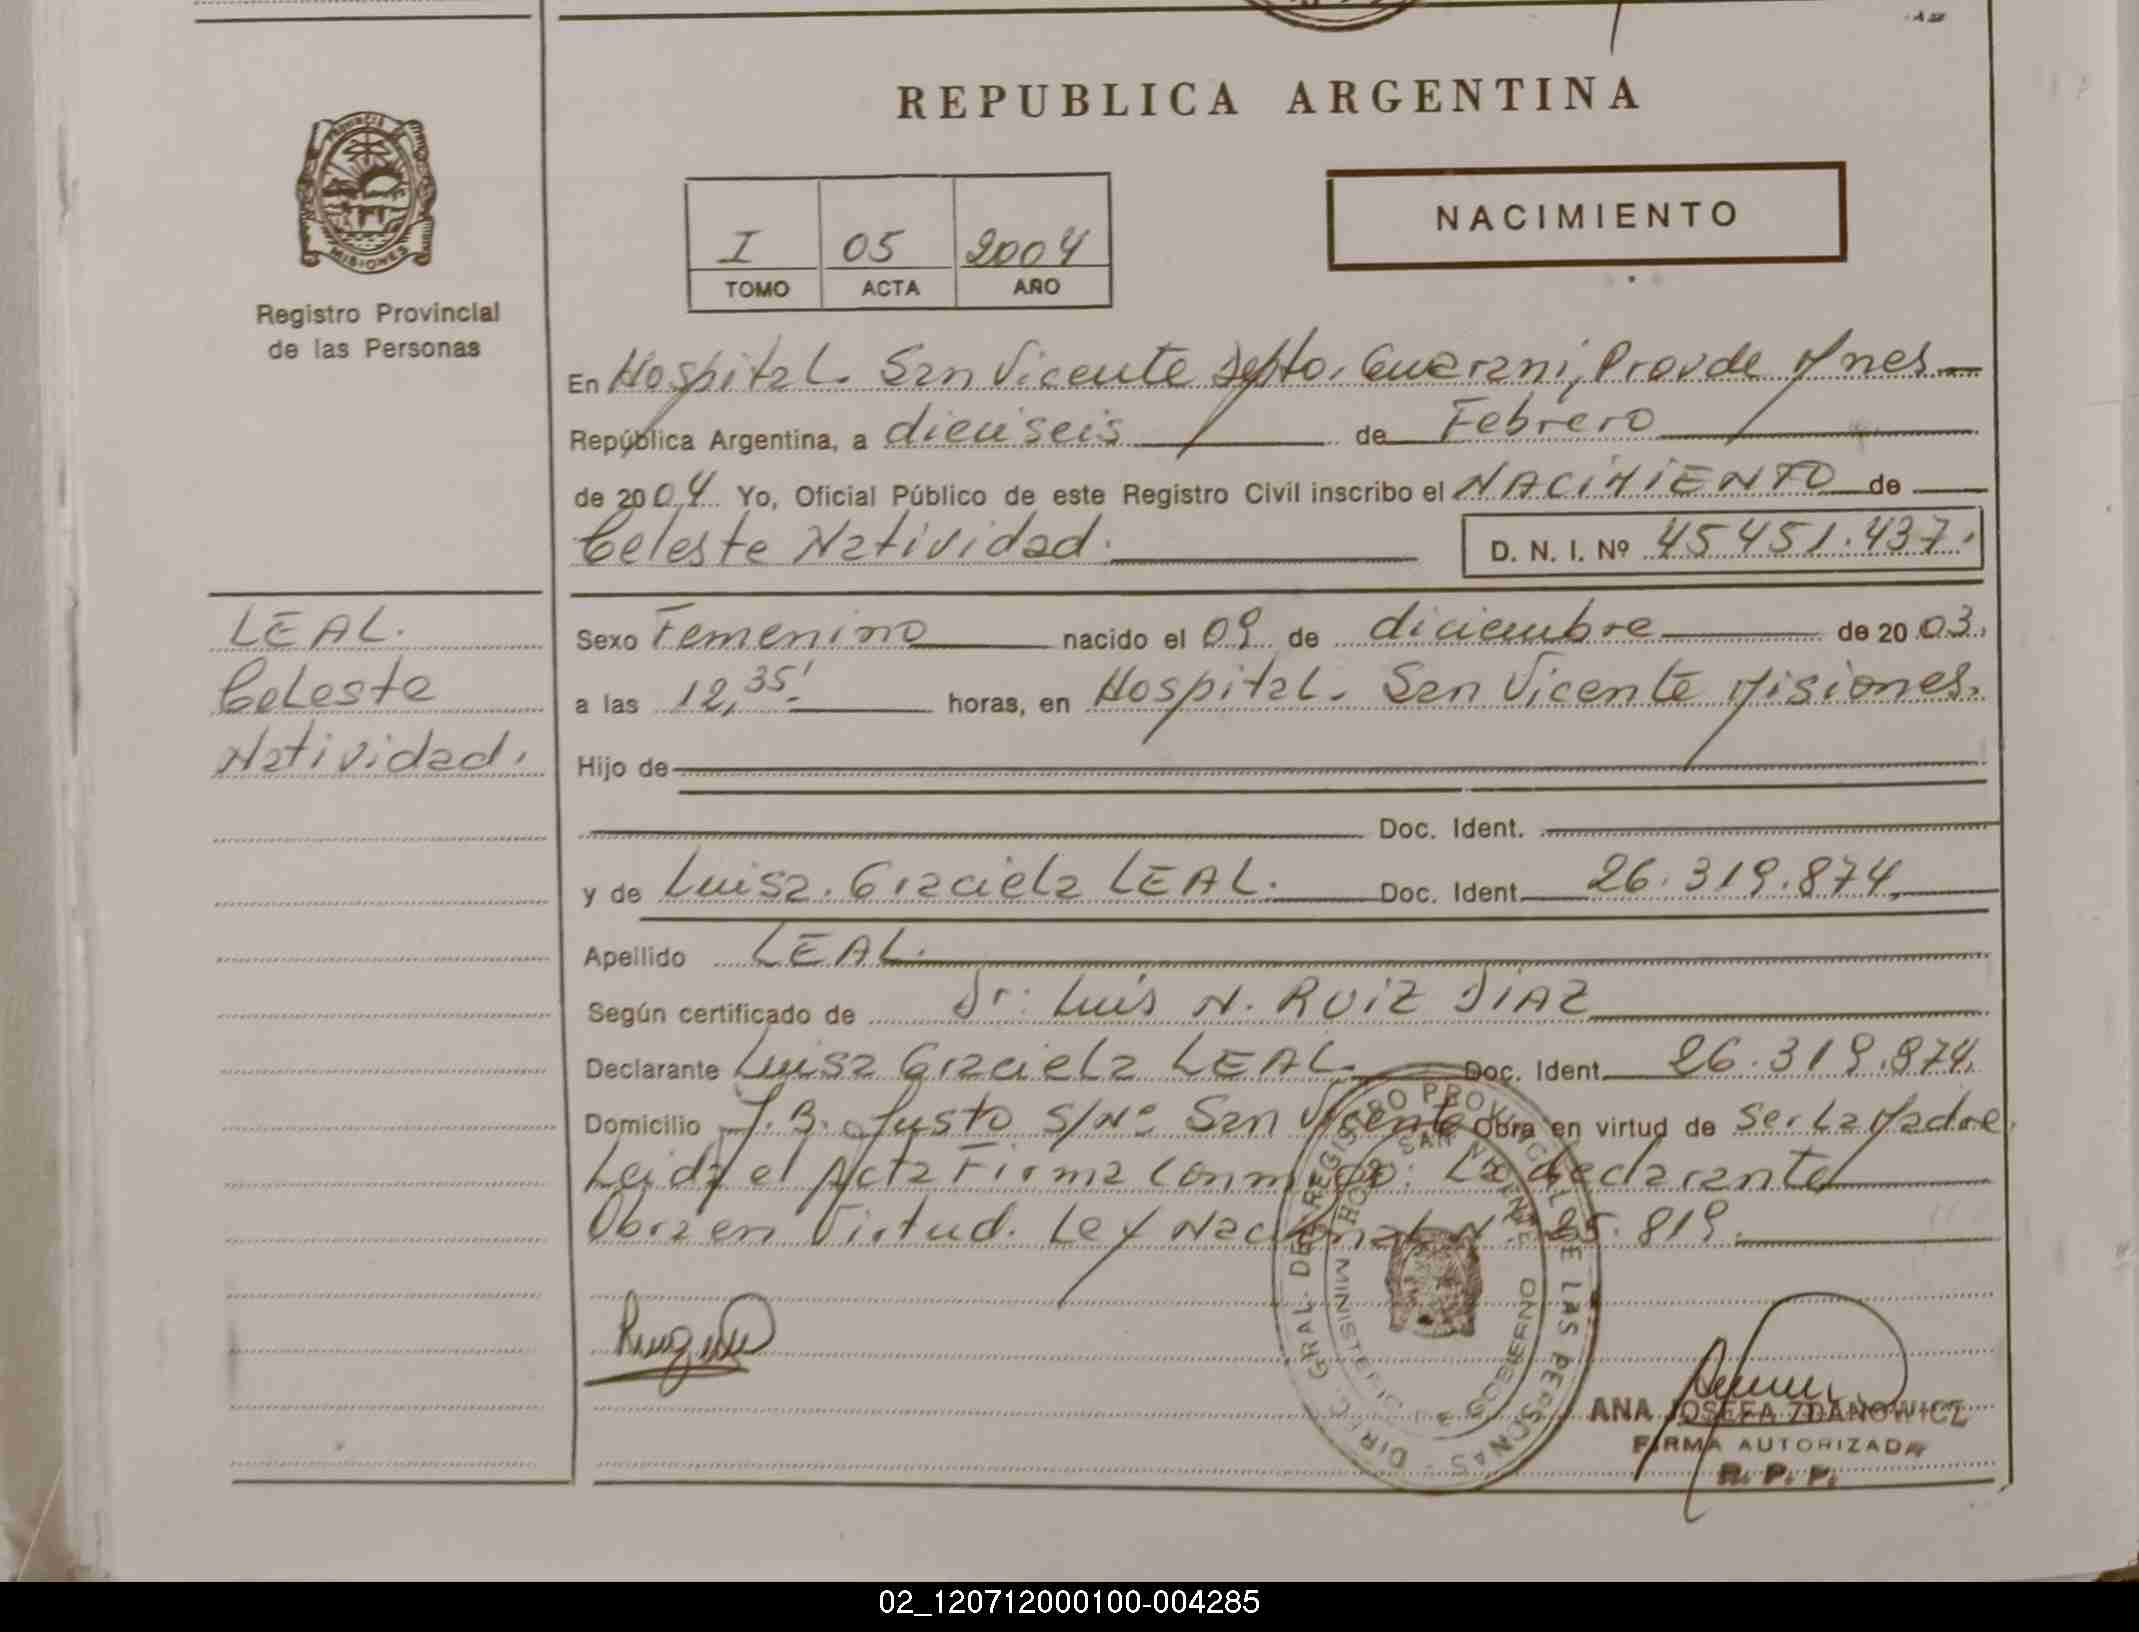 REPUBLICA ARGENTINA
PROVINCIA DE
MISIONES
Registro Provincial
de las Personas
I 05 2004
TOMO ACTA AÑO
NACIMIENTO
En Hospital. San Vicente Depto. Guarani, Prov de Mnes
República Argentina, a dieciseis de Febrero
de 2004 Yo, Oficial Público de este Registro Civil inscribo el NACIMIENTO de
Celeste Natividad. D. N. I. Nº 45451.437.
LEAL.
Celeste
Natividad.
Sexo Femenino nacido el 09 de diciembre de 2003.
a las 12,35' horas, en Hospital. San Vicente Misiones.
Hijo de
Doc. Ident.
y de Luisa. Graciela LEAL. Doc. Ident. 26.319.874,
Apellido LEAL.
Según certificado de Dr: Luis N. RUIZ DIAZ
Declarante Luisa Graciela LEAL. Doc. Ident. 26.319.874,
Domicilio J.B. Justo S/Nº San Vicente Obra en virtud de Ser La Madre.
Leida el Acta Firma Conmigo: La declarante
Obra en Virtud. Ley Nacional Nº 25.819.
DIREC. GRAL. DEL REGISTRO PROVINCIAL DE LAS PERSONAS
HOSP. SAN VICENTE
MINISTERIO DE GOBIERNO
ANA JOSEFA ZDANOWICZ
FIRMA AUTORIZADA
R. P. P.
02_120712000100-004285